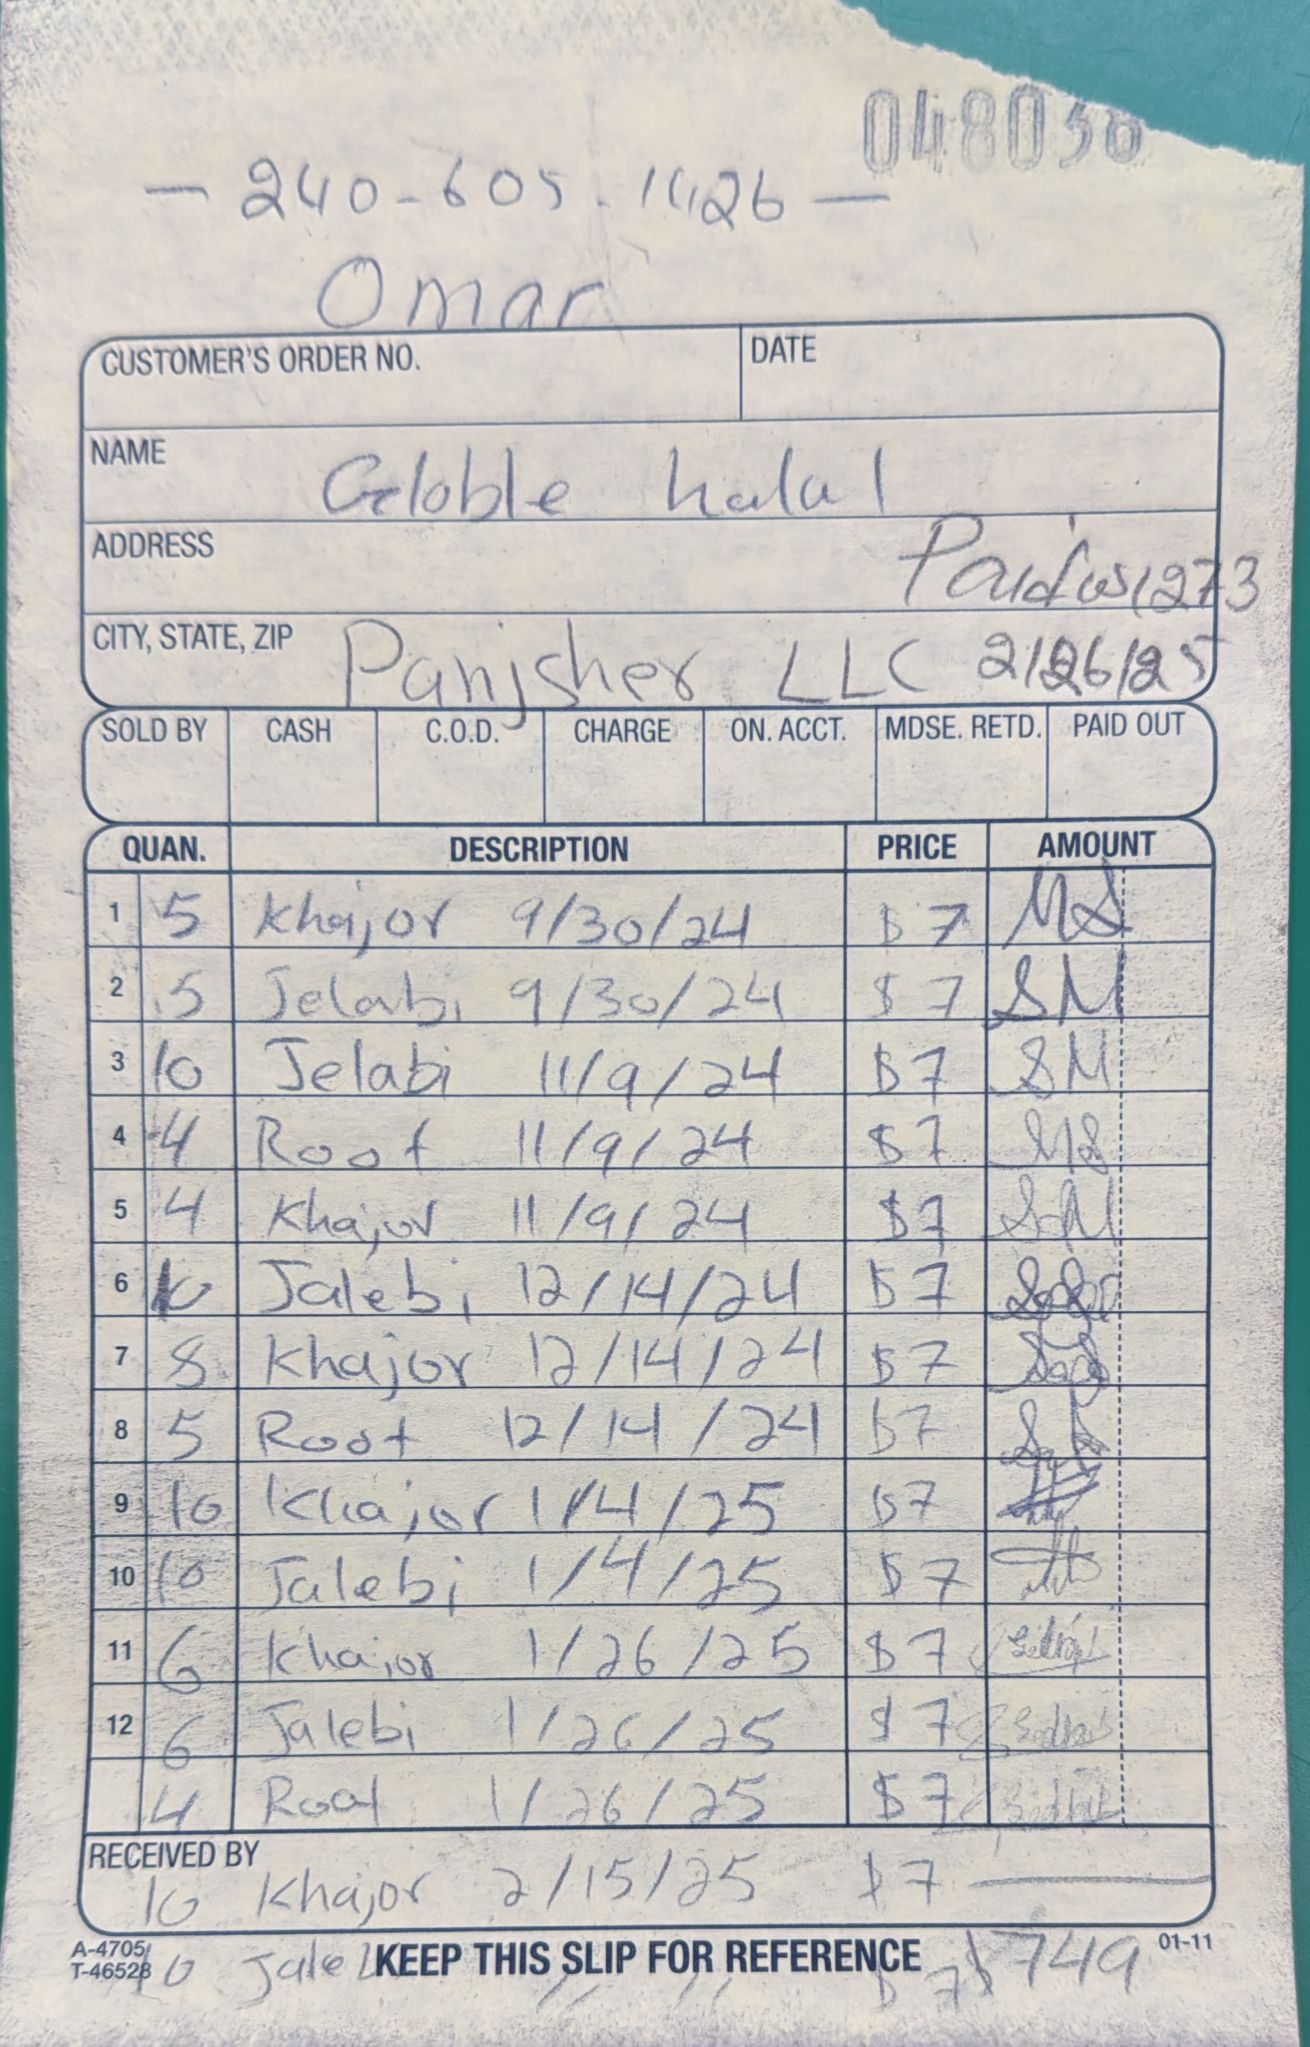 048038
- 240-605-1426 -
Omar
CUSTOMER'S ORDER NO. DATE
NAME Globle halal
ADDRESS Paid 1273
CITY, STATE, ZIP Panjsher LLC 2/26/25
SOLD BY CASH C.O.D. CHARGE ON. ACCT. MDSE. RETD. PAID OUT
QUAN. DESCRIPTION PRICE AMOUNT
1 5 Khajor 9/30/24 $7 MS
2 5 Jelabi 9/30/24 $7 SM
3 10 Jelabi 11/9/24 $7 SM
4 4 Root 11/9/24 $7 MS
5 4 Khajor 11/9/24 $7 SM
6 10 Jalebi 12/14/24 $7
7 8 Khajor 12/14/24 $7
8 5 Root 12/14/24 $7
9 10 Khajor 1/4/25 $7
10 10 Jalebi 1/4/25 $7
11 6 Khajor 1/26/25 $7
12 6 Jalebi 1/26/25 $7
4 Root 1/26/25 $7
RECEIVED BY
10 Khajor 2/15/25 $7
A-4705
T-46528
10 KEEP THIS SLIP FOR REFERENCE 01-11
$7 $749